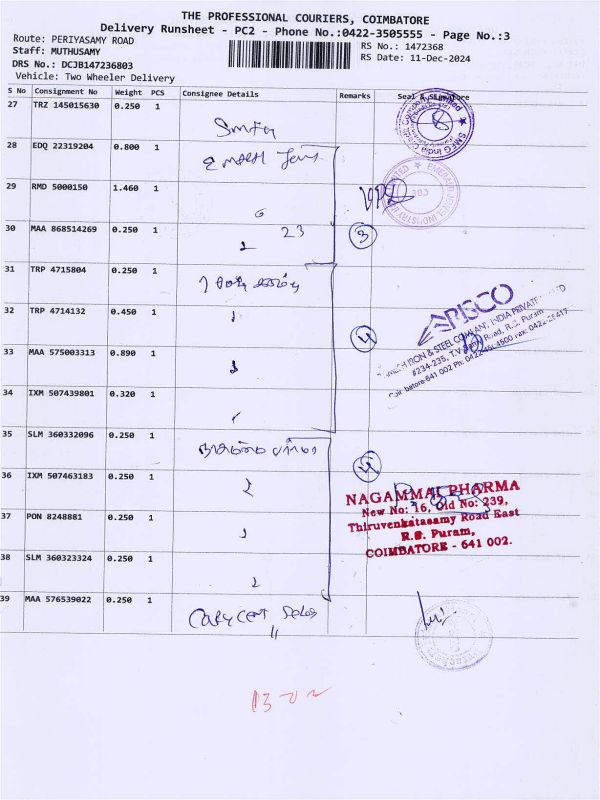 THE PROFESSIONAL COURIERS, COIMBATORE
Delivery Runsheet - PC2 - Phone No.:0422-3505555 - Page No.:3
Route: PERIYASAMY ROAD
RS No.: 1472368
Staff: MUTHUSAMY
RS Date: 11-Dec-2024
DRS No.: DCJB147236803
Vehicle: Two Wheeler Delivery
S No Consignment No Weight PCS Consignee Details Remarks Seal & Signature
27 TRZ 145015630 0.250 1
28 EDQ 22319204 0.800 1
29 RMD 5000150 1.460 1
30 MAA 868514269 0.250 1
23
3
31 TRP 4715804 0.250 1
32 TRP 4714132 0.450 1
4
33 MAA 575003313 0.890 1
34 IXM 507439801 0.320 1
35 SLM 360332096 0.250 1
4
36 IXM 507463183 0.250 1
NAGAMMAI PHARMA
New No: 16, Old No: 239,
Thiruvenkatasamy Road East
R.S. Puram,
COIMBATORE - 641 002.
37 PON 8248881 0.250 1
38 SLM 360323324 0.250 1
39 MAA 576539022 0.250 1